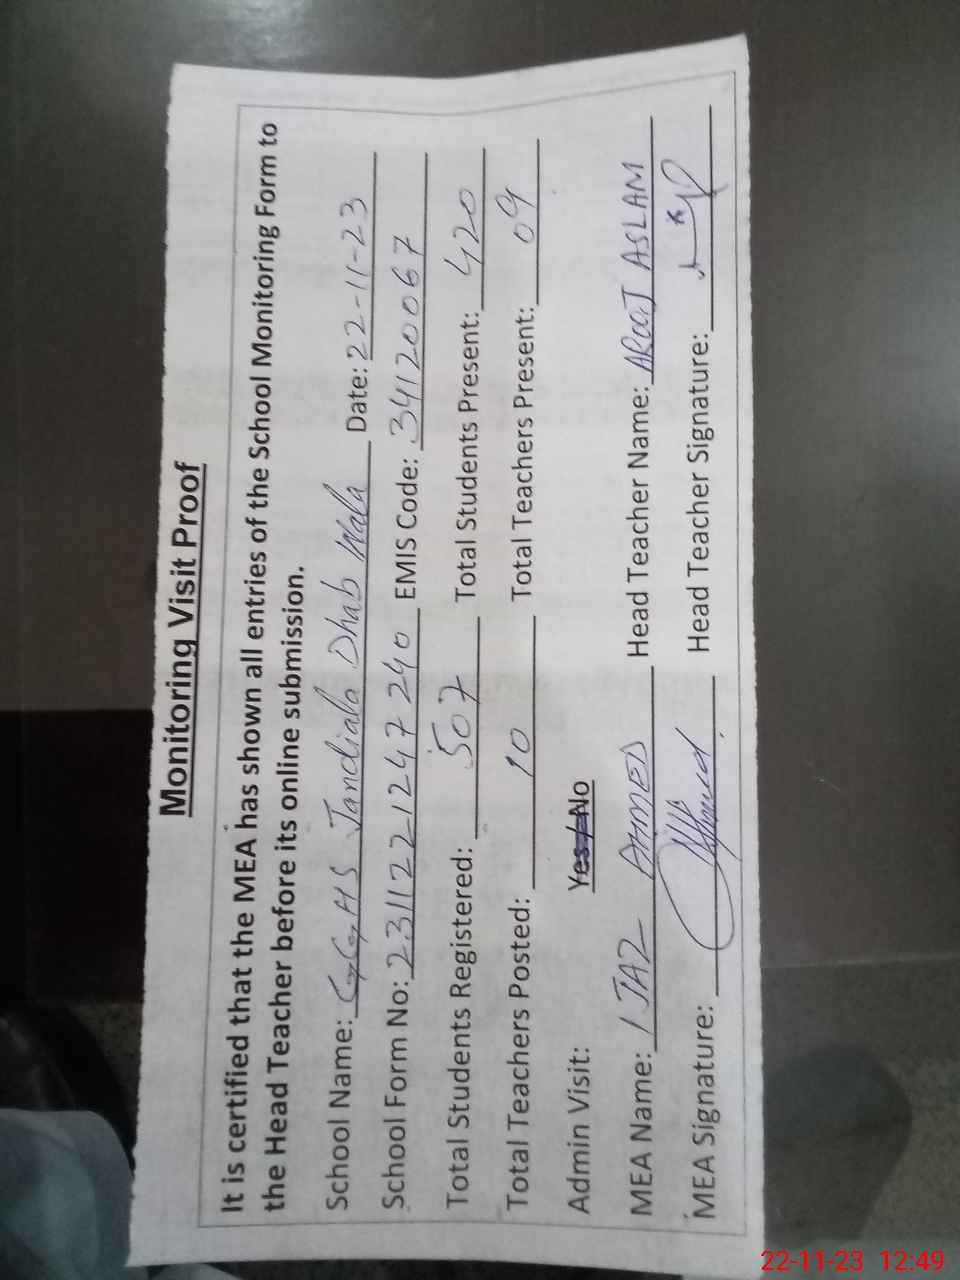 Monitoring Visit Proof
It is certified that the MEA has shown all entries of the School Monitoring Form to
the Head Teacher before its online submission.
School Name: GGHS Jandiala Dhab Wala Date: 22-11-23
School Form No: 2311221247240 EMIS Code: 34120067
Total Students Registered: 507 Total Students Present: 420
Total Teachers Posted: 10 Total Teachers Present: 09
Admin Visit: Yes/No
MEA Name: IJAZ AHMED Head Teacher Name: AROOJ ASLAM
MEA Signature: Head Teacher Signature:
22-11-23 12:49